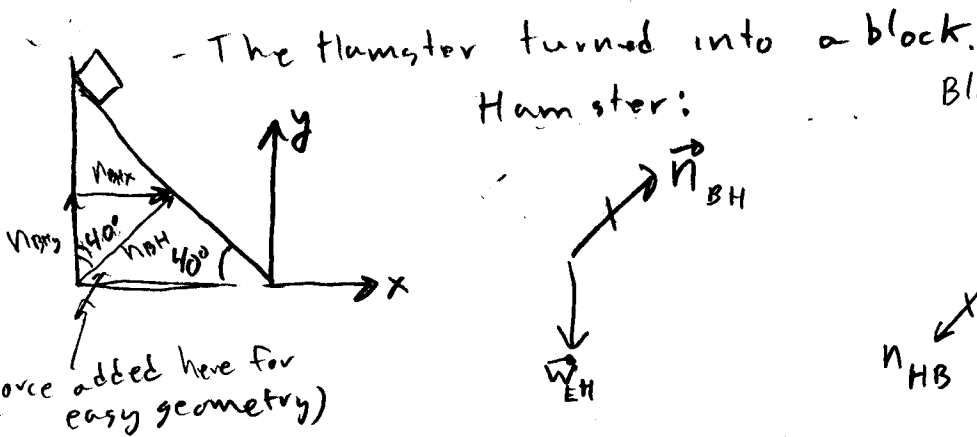 - The Hamster turned into a block.
Hamster:
Bl
y
n BHx
n BHy
40°
n BH
40°
x
n BH
W EH
n HB
orce added here for
easy geometry)